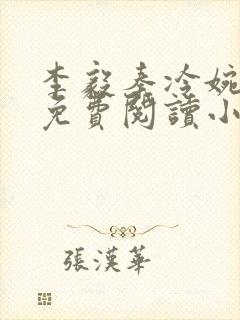 李毅秦冷婉
免費閱讀小
張漢華